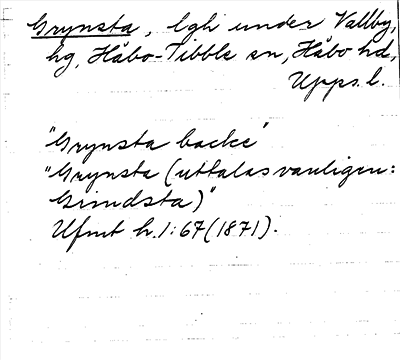 Grynsta, lgh under Vallby,
hg, Håbo-Tibble sn, Håbo hd,
Upps. l.
"Grynsta backe"
"Grynsta (uttalas vanligen:
Grindsta)"
Ufmt h. 1:67 (1871).